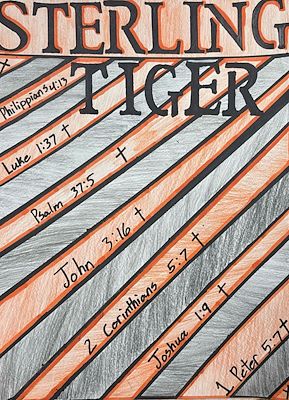 STERLING
TIGER
Philippians 4:13
Luke 1:37 †
Psalm 37:5 †
John 3:16 †
2 Corinthians 5:7 †
Joshua 1:9 †
1 Peter 5:7 †